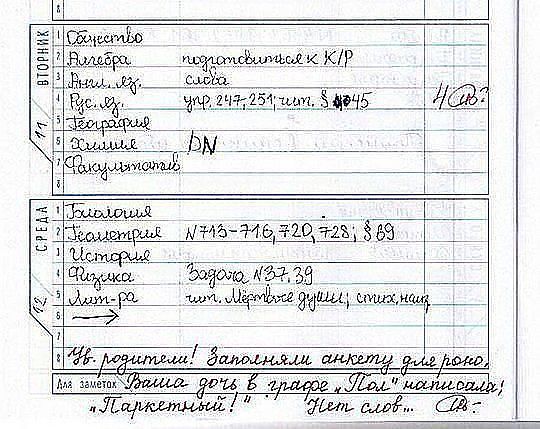 ВТОРНИК
11
1 Общество
2 Алгебра подготовиться к К/Р
3 Англ. яз. слова
4 Рус. яз. упр. 247, 251; чит. § 45 4
5 География
6 Химия
7 Факультатив
8
СРЕДА
12
1 Биология
2 Геометрия N713-716, 720, 728; § 69
3 История
4 Физика Задача N37,39
5 Лит-ра чит. Мёртвые души; стих. наиз
6 →
7
8 Ув. родители! Заполняли анкету для роно.
Для заметок Ваша дочь в графе „Пол" написала;
„Паркетный!" Нет слов...